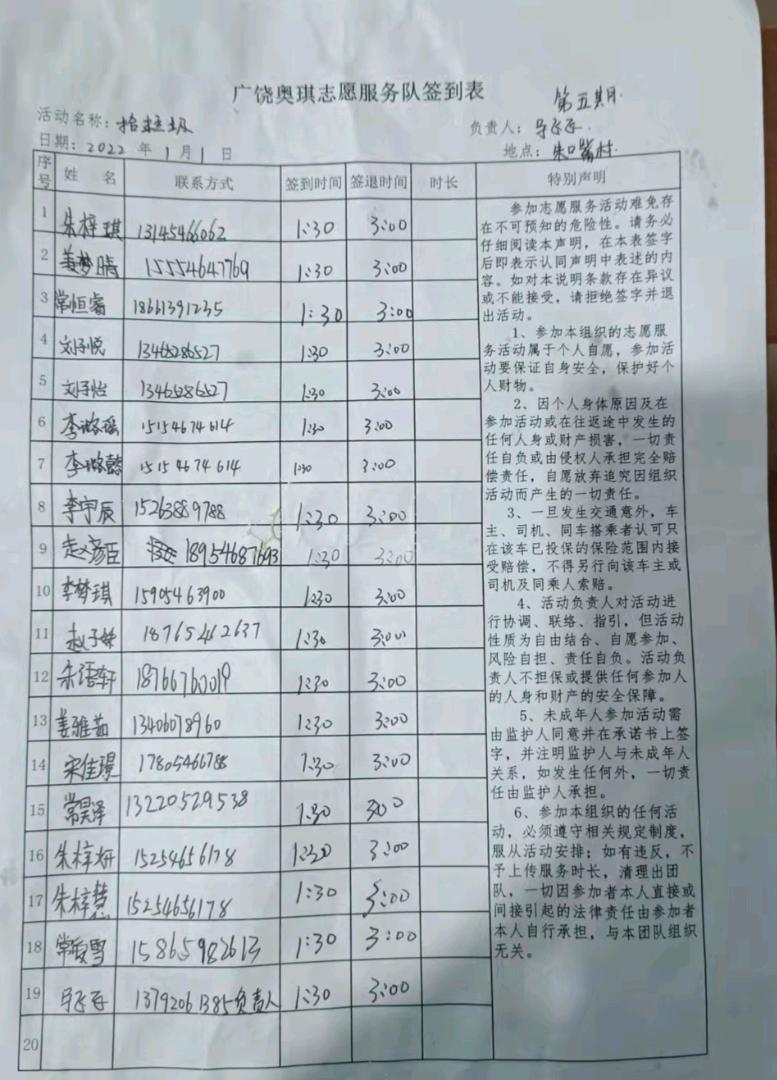 广饶奥琪志愿服务队签到表
第五期
活动名称：拾垃圾
负责人：马
日期：2022 年 1 月 1 日
地点：朱口 村
序号 姓 名 联系方式 签到时间 签退时间 时长 特别声明
1 朱梓琪 13145466062 1:30 3:00
2 姜梦晴 15554647769 1:30 3:00
3 常恒睿 18661391235 1:30 3:00
4 刘子悦 13465286527 1:30 3:00
5 刘子怡 13465286527 1:30 3:00
6 李璐瑶 15154674614 1:30 3:00
7 李璐懿 15154674614 1:30 3:00
8 李宇辰 15263889788 1:30 3:00
9 赵彦臣 18954687693 1:30 3:00
10 李梦琪 15905463900 1:30 3:00
11 赵子 18765462637 1:30 3:00
12 宋语轩 18766760019 1:30 3:00
13 姜雅茹 13406078960 1:30 3:00
14 宋佳璟 17805466788 1:30 3:00
15 常昊泽 13220529538 1:30 3:00
16 朱梓妍 15254656178 1:30 3:00
17 朱梓慧 15254656178 1:30 3:00
18 常俊雪 15865982613 1:30 3:00
19 马 13792061385负责人 1:30 3:00
20
参加志愿服务活动难免存
在不可预知的危险性。请务必
仔细阅读本声明，在本表签字
后即表示认同声明中表述的内
容。如对本说明条款存在异议
或不能接受，请拒绝签字并退
出活动。
1、参加本组织的志愿服
务活动属于个人自愿，参加活
动要保证自身安全，保护好个
人财物。
2、因个人身体原因及在
参加活动或在往返途中发生的
任何人身或财产损害，一切责
任自负或由侵权人承担完全赔
偿责任，自愿放弃追究因组织
活动而产生的一切责任。
3、一旦发生交通意外，车
主、司机、同车搭乘者认可只
在该车已投保的保险范围内接
受赔偿，不得另行向该车主或
司机及同乘人索赔。
4、活动负责人对活动进
行协调、联络、指引，但活动
性质为自由结合、自愿参加、
风险自担、责任自负。活动负
责人不担保或提供任何参加人
的人身和财产的安全保障。
5、未成年人参加活动需
由监护人同意并在承诺书上签
字，并注明监护人与未成年人
关系，如发生任何外，一切责
任由监护人承担。
6、参加本组织的任何活
动，必须遵守相关规定制度，
服从活动安排；如有违反，不
予上传服务时长，清理出团
队，一切因参加者本人直接或
间接引起的法律责任由参加者
本人自行承担，与本团队组织
无关。